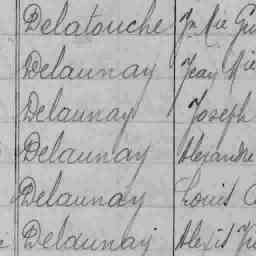 Delatouche Jn Mie
Delaunay Jean Mie
Delaunay Joseph
Delaunay Alexandre
Delaunay Louis
Delaunay Alexis